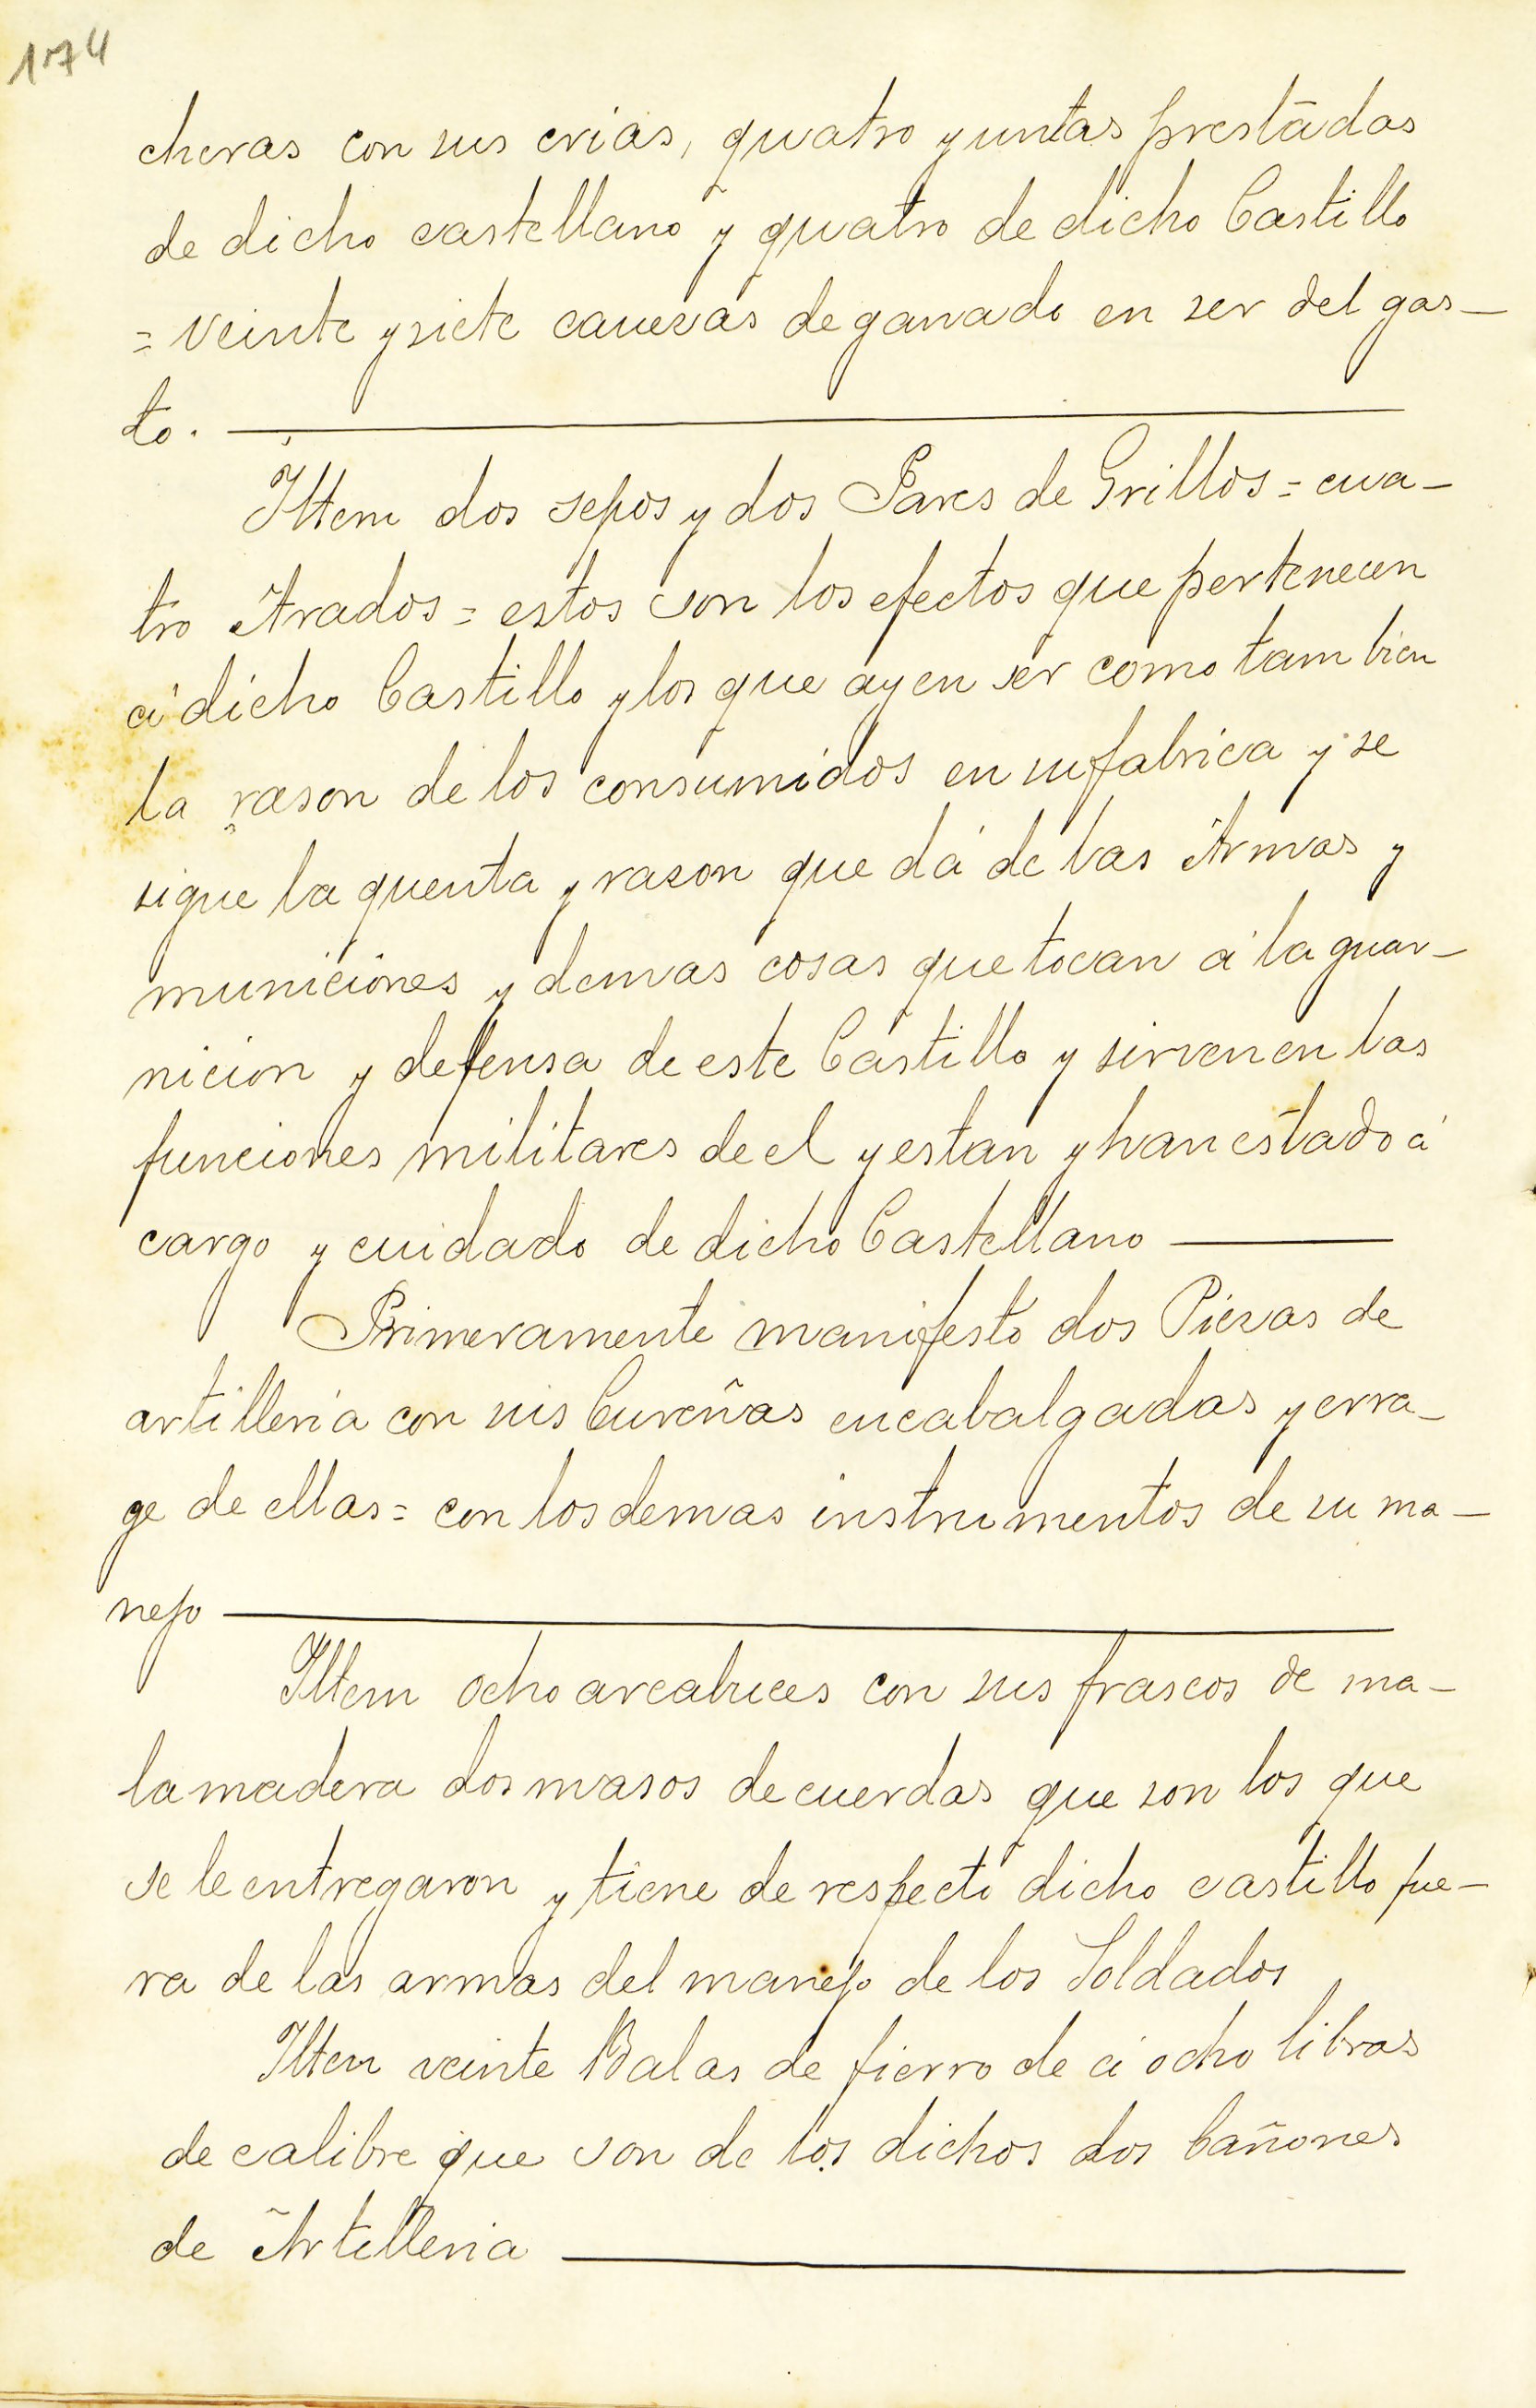 174
cheras con sus crias, quatro yuntas prestadas
de dicho castellano y quatro de dicho Castillo
= veinte y siete cauezas de ganado en ser del gas-
to.
Ittem dos sepos y dos Pares de Grillos = cua-
tro Arados = estos son los efectos que pertenecen
á dicho Castillo y los que ay en ser como tambien
la rason de los consumidos en su fabrica y se
sigue la quenta y razon que dá de las Armas y
municiones y demas cosas que tocan á la guar-
nicion y defensa de este Castillo y sirven en las
funciones militares de el y estan y han estado á
cargo y cuidado de dicho Castellano
Primeramente manifesto dos Piezas de
artilleria con sus Cureñas encabalgadas y erra-
ge de ellas = con los demas instrumentos de su ma-
nejo
Ittem ocho arcabuces con sus frascos de ma-
la madera dos masos de cuerdas que son los que
se le entregaron y tiene de respecto dicho castillo fue-
ra de las armas del manejo de los Soldados
Ittem veinte Balas de fierro de á ocho libras
de calibre que son de los dichos dos Cañones
de Artelleria